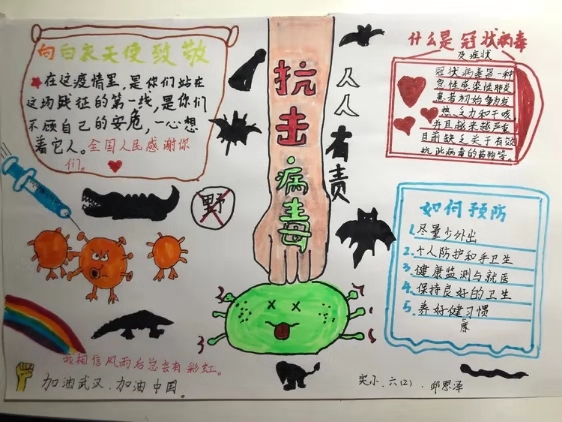 向白衣天使致敬
在这疫情里,是你们站在
这场战征的第一线,是你们
不顾自己的安危,一心想
着它人。全国人民感谢你
们。
抗击病毒
人人有责
野
什么是冠状病毒
及症状
冠状病毒是一种
急性感染性肺炎
患者初始症状为
热、乏力和干咳
并且越来越严重
目前缺乏关于有效
抗此病毒的药物等.
如何预防
1.尽量少外出
2.个人防护和手卫生
3.健康监测与就医
4.保持良好的卫生
5.养好健习惯
康
我相信风雨后总会有彩虹。
加油武汉.加油中国。
实小.六(2).邱恩泽